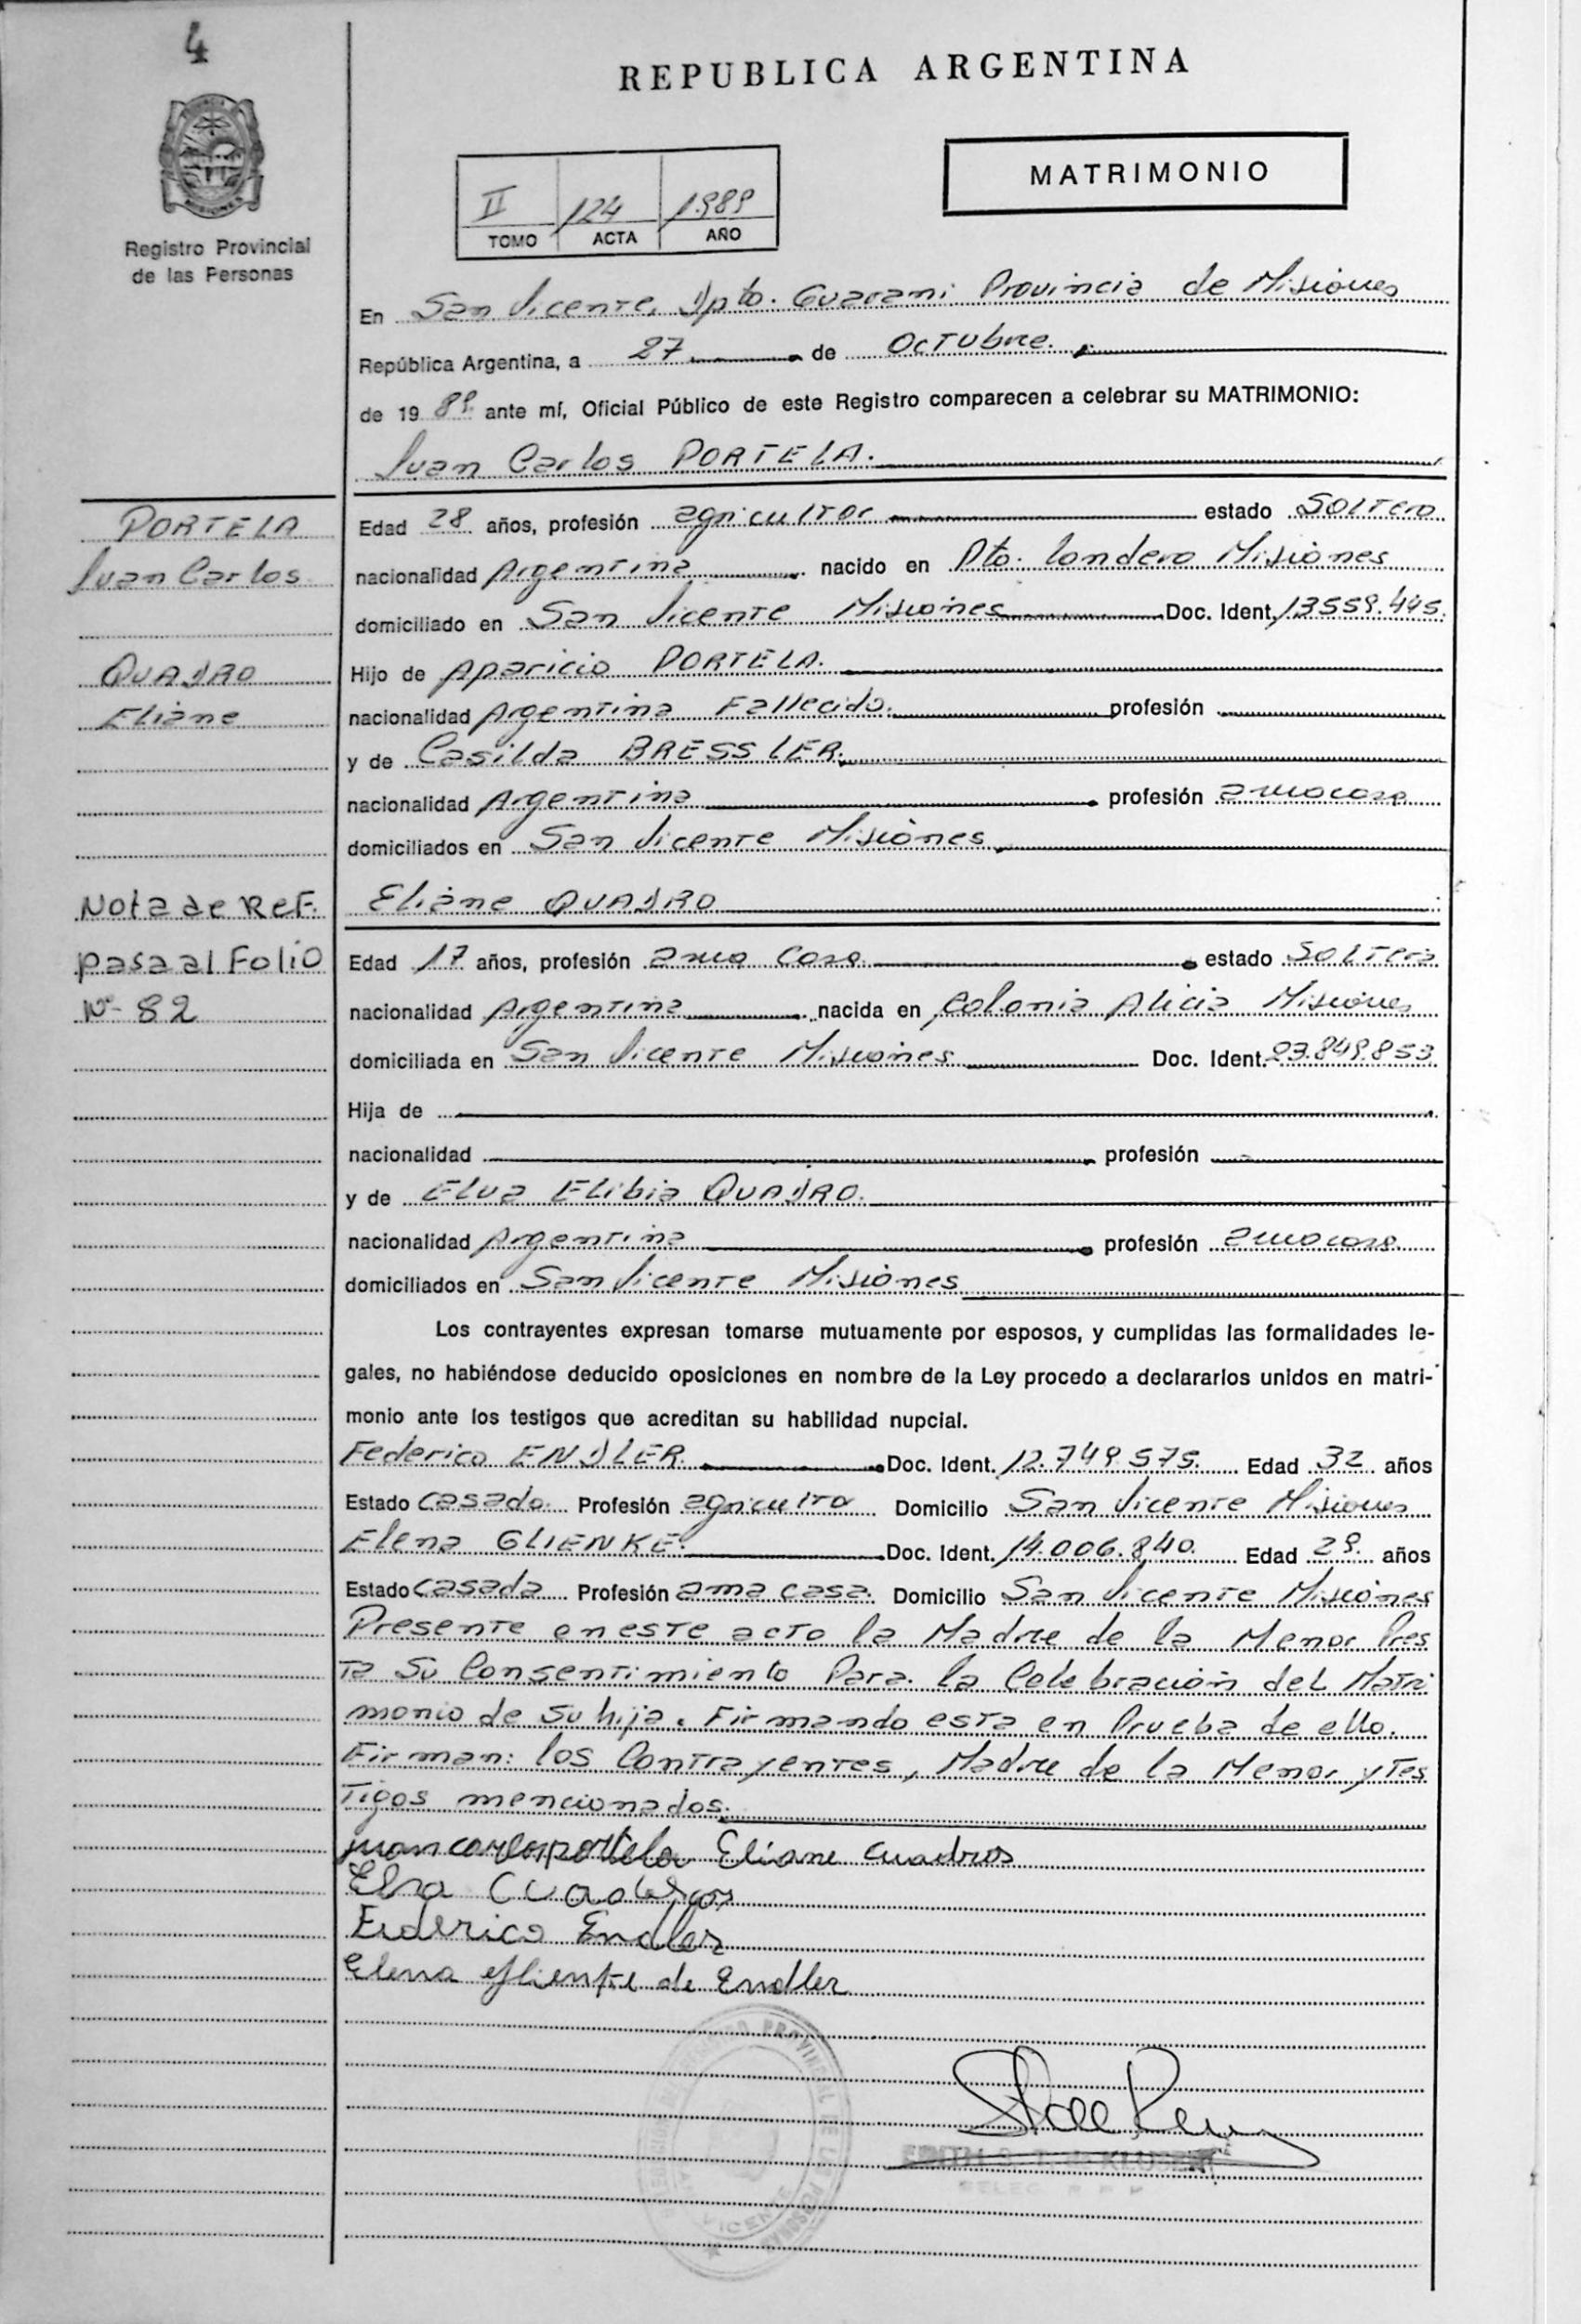 4
REPUBLICA ARGENTINA
MATRIMONIO
II 124 1989
TOMO ACTA AÑO
Registro Provincial
de las Personas
En San Vicente, Dpto. Guarani Provincia de Misiones
República Argentina, a 27 de Octubre.
de 19 89 ante mí, Oficial Público de este Registro comparecen a celebrar su MATRIMONIO:
Juan Carlos PORTELA.
PORTELA
Juan Carlos
Edad 28 años, profesión agricultor estado Soltero
nacionalidad Argentina nacido en Pto. Londero Misiones
domiciliado en San Vicente Misiones Doc. Ident. 13559.445.
QUADRO
Eliane
Hijo de Aparicio PORTELA.
nacionalidad Argentina Fallecido. profesión
y de Casilda BRESSLER.
nacionalidad Argentina profesión ama casa
domiciliados en San Vicente Misiones
Nota de Ref.
pasa al Folio
Nº 82
Eliane QUADRO
Edad 17 años, profesión ama Casa estado Soltera
nacionalidad Argentina nacida en Colonia Alicia Misiones
domiciliada en San Vicente Misiones Doc. Ident. 23.849.853
Hija de
nacionalidad profesión
y de Elva Elibia QUADRO.
nacionalidad Argentina profesión ama casa
domiciliados en San Vicente Misiones
Los contrayentes expresan tomarse mutuamente por esposos, y cumplidas las formalidades le-
gales, no habiéndose deducido oposiciones en nombre de la Ley procedo a declararlos unidos en matri-
monio ante los testigos que acreditan su habilidad nupcial.
Federico ENDLER. Doc. Ident. 12.749.575. Edad 32 años
Estado Casado. Profesión agricultor Domicilio San Vicente Misiones
Elena GLIENKE. Doc. Ident. 14.006.840. Edad 29. años
Estado Casada Profesión ama casa. Domicilio San Vicente Misiones
Presente en este acto la Madre de la Menor Pres
ta Su Consentimiento Para la Celebración del Matri
monio de su hija. Firmando esta en Prueba de ello.
Firman: los Contrayentes, Madre de la Menor y Tes
Tigos mencionados.
juan carlos portela Eliane Cuadros
Federico Endler
Elena Glienke de Endler